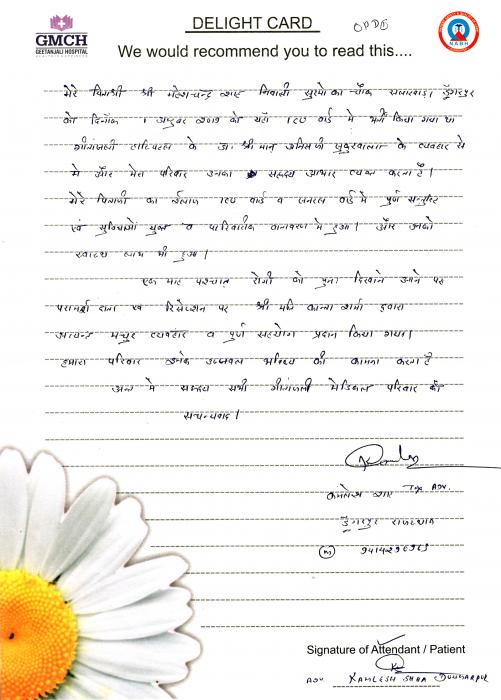 GMCH
GEETANJALI HOSPITAL
DELIGHT CARD
OPDB
NABH
We would recommend you to read this....
मेरे पिताश्री श्री महेशचन्द्र शाह निवासी सुरमो का चौक सागवाड़ा, डूंगरपुर
को दिनांक 1 अक्टूबर 2019 को यहाँ ICU वार्ड में भर्ती किया गया था
गीतांजली हॉस्पिटल के डॉ. श्रीमान के व्यवहार से
मै और मेरा परिवार उनका सहृदय आभार व्यक्त करता है।
मेरे पिताजी का ईलाज ICU वार्ड व जनरल वार्ड में पूर्ण सन्तुष्टि
एवं सुविधाओं युक्त व पारिवारिक वातावरण मे हुआ। और उनको
स्वास्थ्य लाभ भी हुआ।
एक माह पश्चात रोगी को पुनः दिखाने आने पर
परामर्श दाता एवं रिसेप्शन पर श्री मति कान्ता शर्मा द्वारा
अत्यन्त मधुर व्यवहार व पुर्ण सहयोग प्रदान किया गया।
हमारा परिवार उनके उज्जवल भविष्य की कामना करता है
अन्त मे समस्त सभी गीतांजली मेडिकल परिवार को
सधन्यवाद।
कमलेश शाह ADV.
डुंगरपुर राजस्थान
(M)
Signature of Attendant / Patient
ADV. KAMLESH SHAH DUNGARPUR